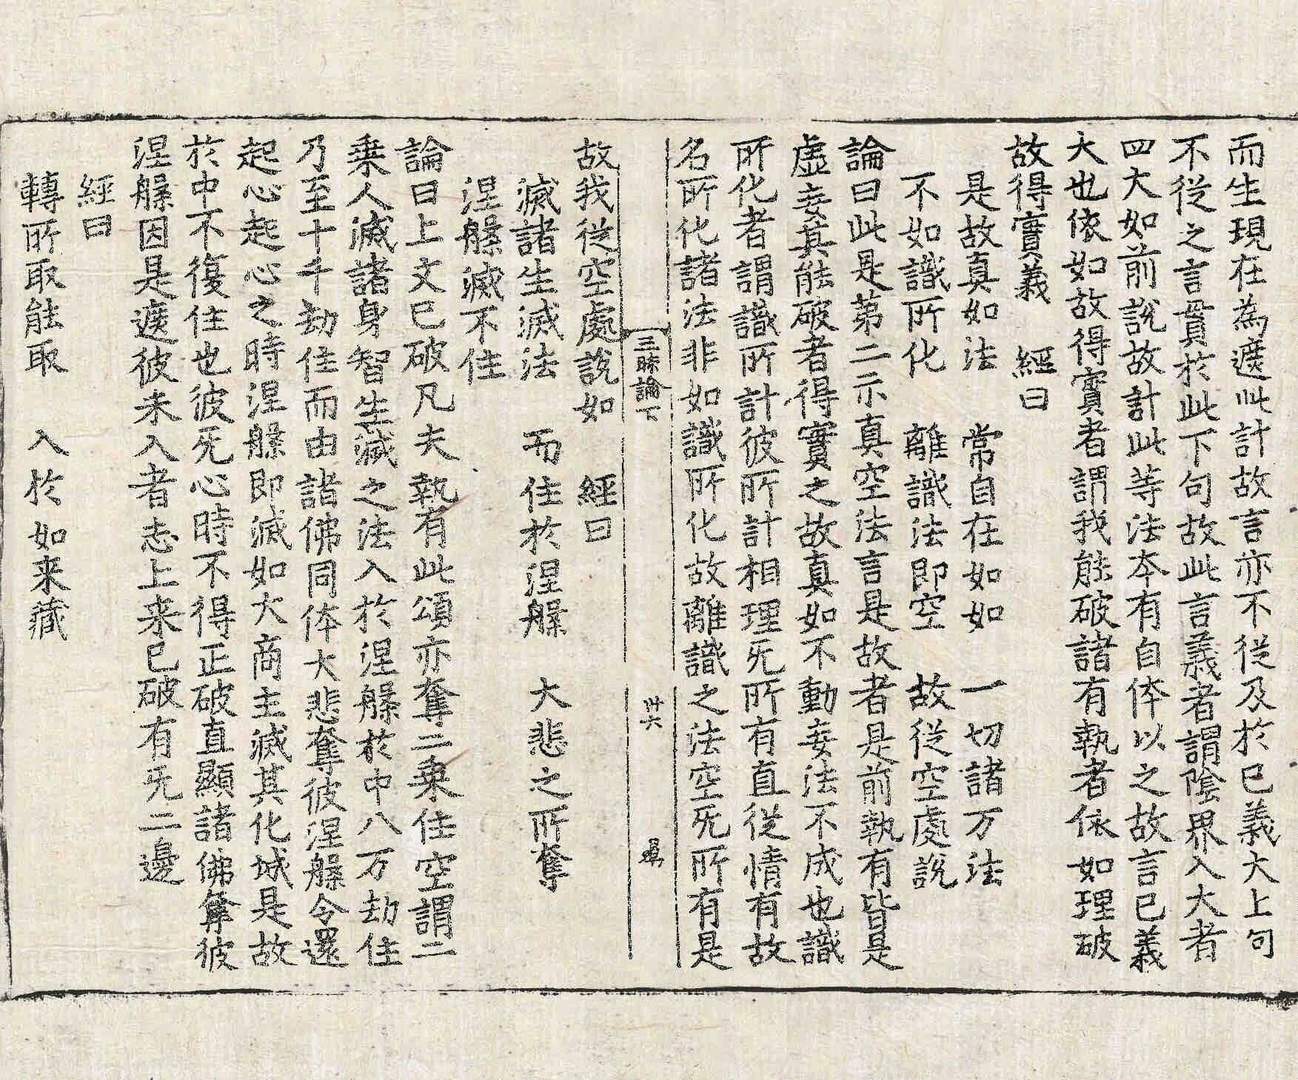 而生現在為遮此計故言亦不從及於已義大上句
不從之言貫於此下句故此言義者謂陰界入大者
四大如前說故計此等法夲有自体以之故言已義
大也依如故得實者謂我能破諸有執者依如理破
故得實義　經曰
是故真如法　常自在如如　一切諸万法
不如識所化　離識法即空　故從空處說
論曰此是第二示真空法言是故者是前執有皆是
虛妄其能破者得實之故真如不動妄法不成也識
所化者謂識所計彼所計相理旡所有直從情有故
名所化諸法非如識所化故離識之法空旡所有是
三昧論下　卅六
故我從空處說如　經曰
滅諸生滅法　而住於涅槃　大悲之所奪
涅槃滅不住
論曰上文已破凡夫執有此頌亦奪二乗住空謂二
乗人滅諸身智生滅之法入於涅槃於中八万劫住
乃至十千劫住而由諸佛同体大悲奪彼涅槃令還
起心起心之時涅槃即滅如大商主滅其化城是故
於中不復住也彼死心時不得正破直顯諸佛奪彼
涅槃因是遮彼未入者志上来已破有旡二邊
經曰
轉所取能取　入於如来藏